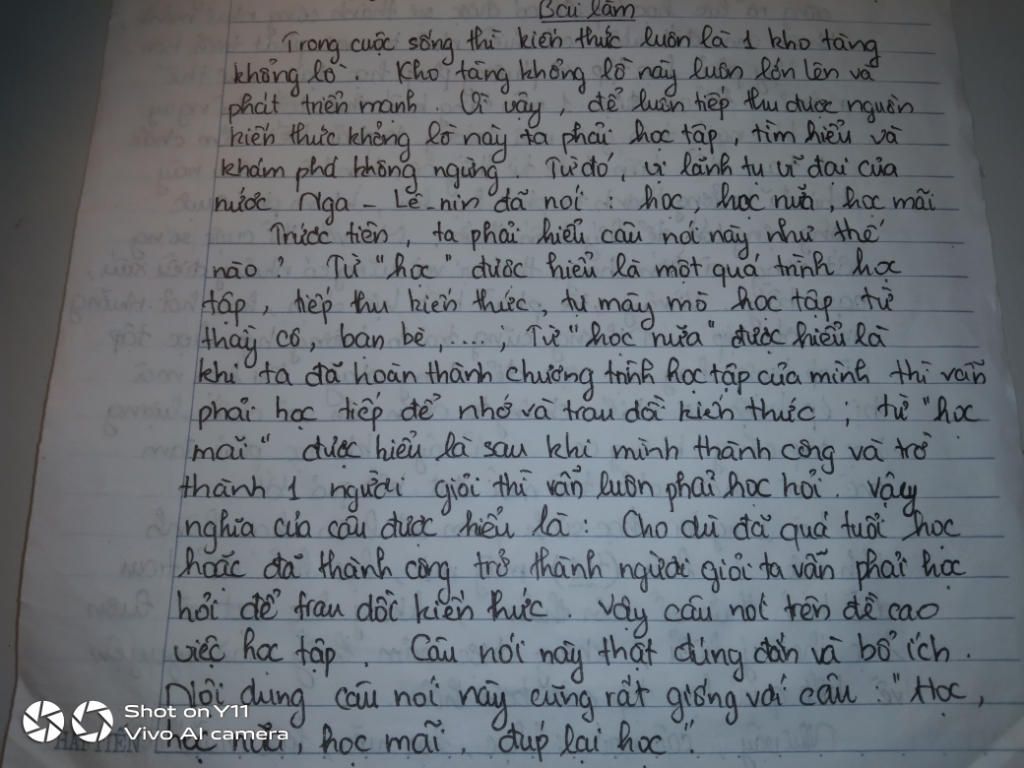 Bài làm
Trong cuộc sống thì kiến thức luôn là 1 kho tàng
khổng lồ. Kho tàng khổng lồ này luôn lớn lên và
phát triển mạnh. Vì vậy, để luôn tiếp thu được nguồn
kiến thức khổng lồ này ta phải học tập, tìm hiểu và
khám phá không ngừng. Từ đó, vị lãnh tụ vĩ đại của
nước Nga - Lê-nin đã nói : học, học nữa, học mãi
Trước tiên, ta phải hiểu câu nói này như thế
nào? Từ "học" được hiểu là một quá trình học
tập, tiếp thu kiến thức, tự mày mò học tập từ
thầy cô, bạn bè,..... Từ "học nữa" được hiểu là
khi ta đã hoàn thành chương trình học tập của mình thì vẫn
phải học tiếp để nhớ và trau dồi kiến thức ; từ "học
mãi" được hiểu là sau khi mình thành công và trở
thành 1 người giỏi thì vẫn luôn phải học hỏi. Vậy
nghĩa của câu được hiểu là : Cho dù đã quá tuổi học
hoặc đã thành công trở thành người giỏi ta vẫn phải học
hỏi để trau dồi kiến thức. Vậy câu nói trên đề cao
việc học tập. Câu nói này thật đúng đắn và bổ ích.
Nội dung câu nói này cũng rất giống với câu : "Học,
học nữa, học mãi, đúp lại học".
Shot on Y11
Vivo AI camera
HẢI TIẾN